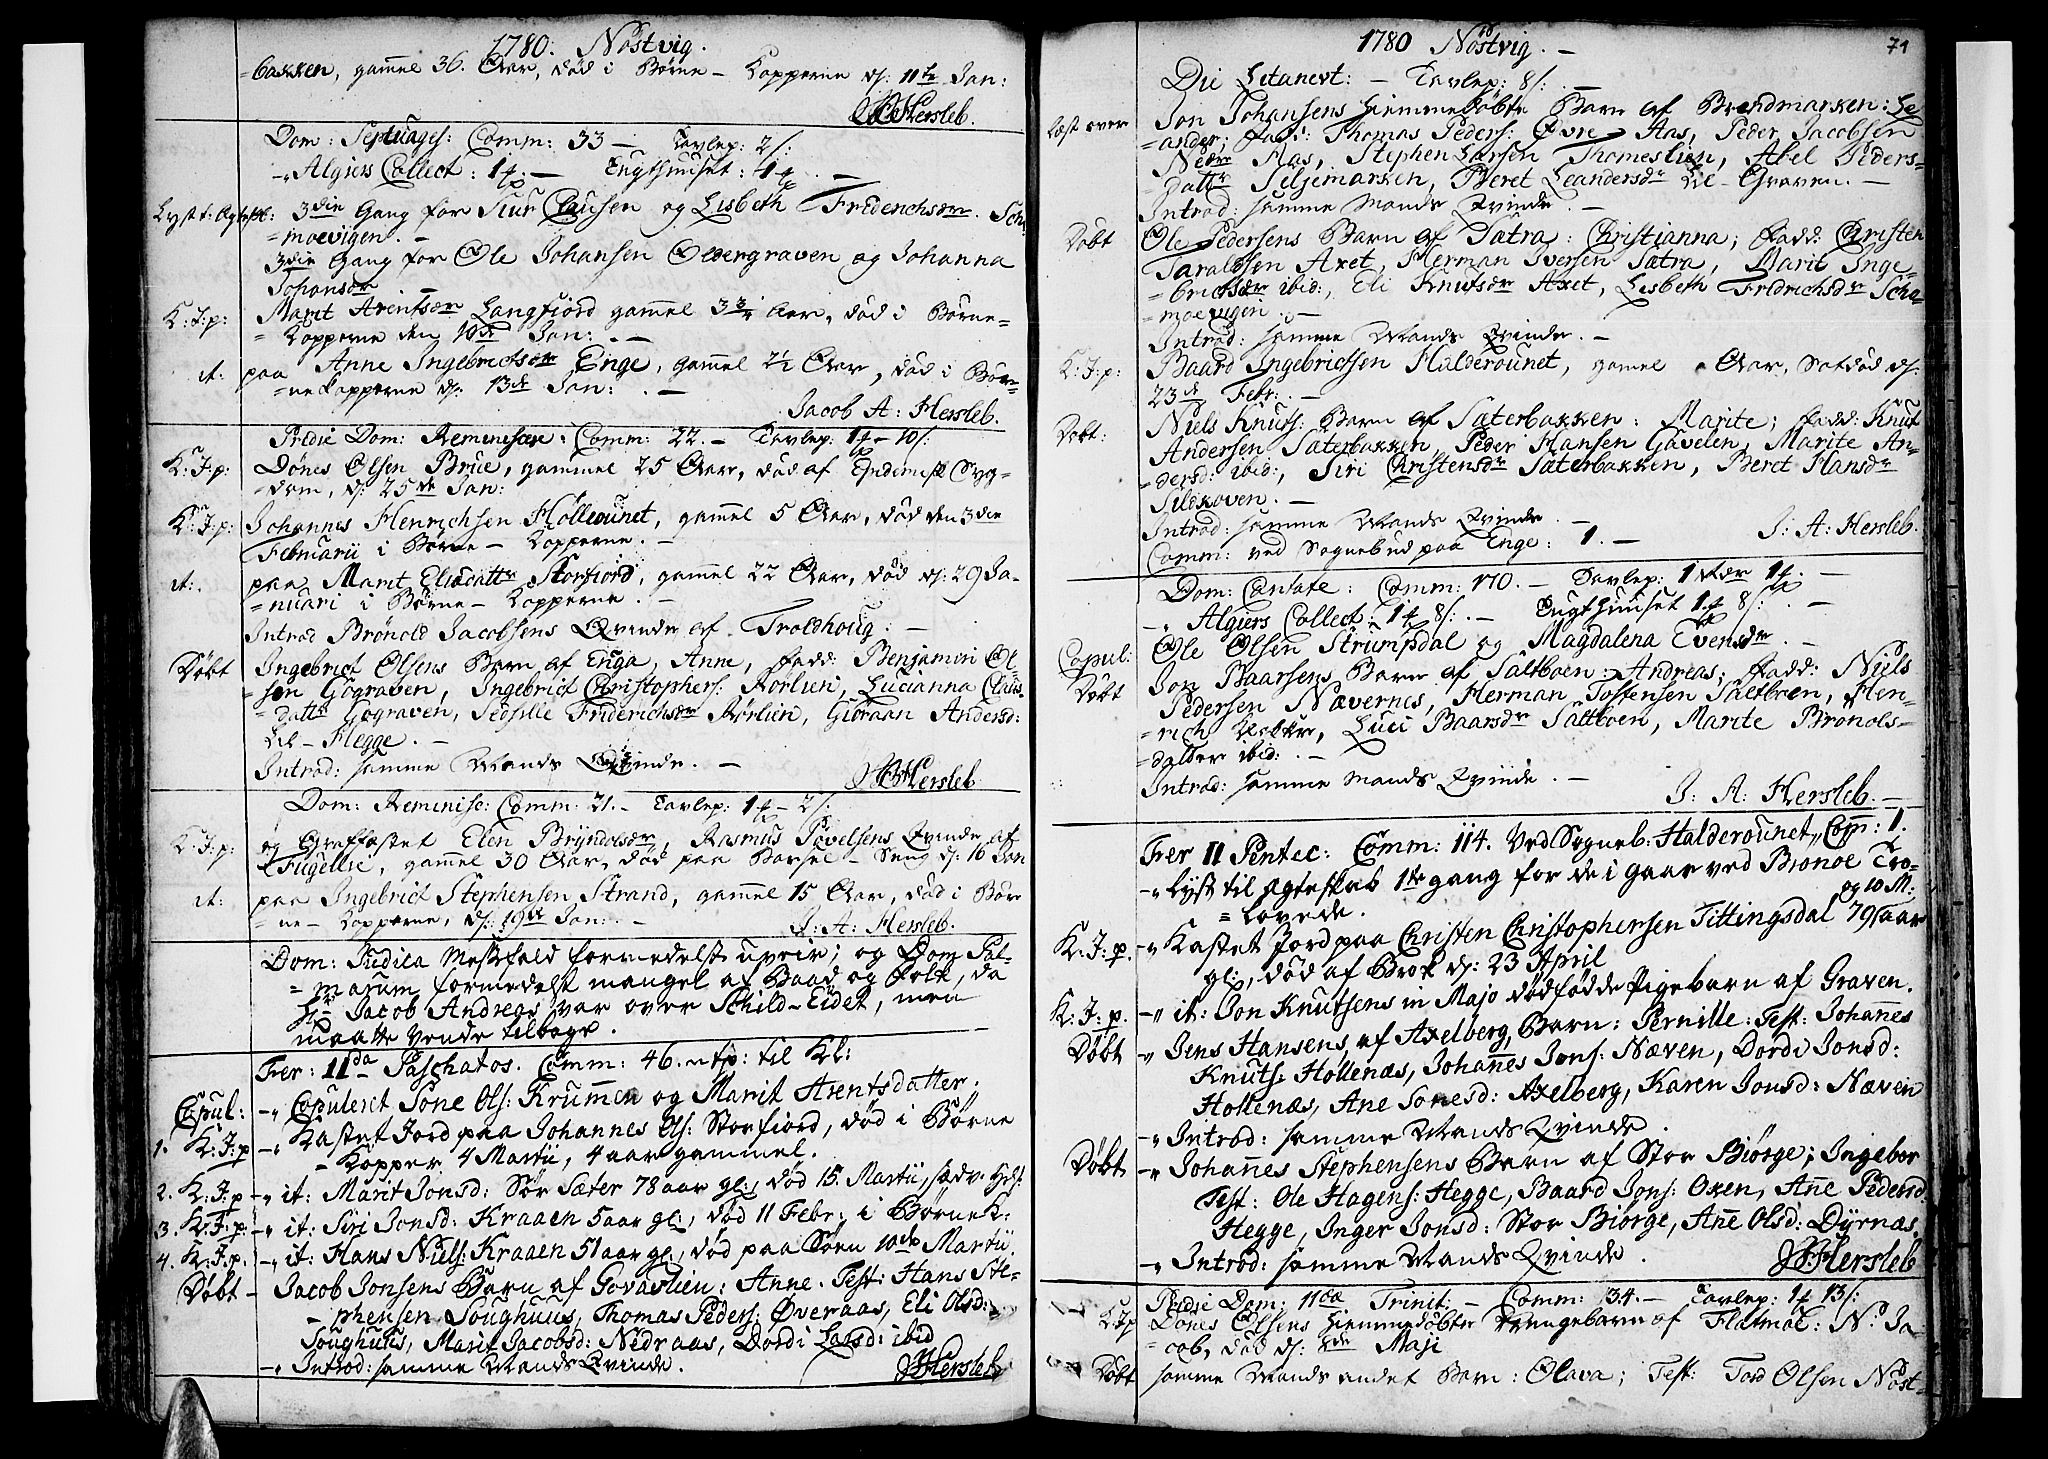 1780. Nöstvig.
=bakken, gammel 36. Aar, død i Børne- Kopperne d: 11te Jan:
JA Hersleb.
Dom: Septuages: Comm: 33 - Tavlep: 2 s:
-" Algiers Collect: 1 - Tugthuuset: 1 -
Lyst t. Ægtesk: 3die Gang for Siur Clausen og Lisbeth Friderichsdr. Scha=
=moevigen. -
3die Gang for Ole Johansen Oldergraven og Johanna
Johansdr -
K: J: p: Marit Arentsdr Langfiord gammel 3 3/4 Aar, død i Børne=
=Kopperne den 10de Jan: -
it: paa Anne Ingebrictsdr Enge, gammel 2½ Aar, død i Bør=
=nekopperne d: 13de Jan: -
Jacob A: Hersleb.
Predie Dom: Reminiscere: Comm: 22. - Tavlep: 1 - 10 s:
K: J: p: Dönes Olsen Brue, gammel 25 Aar, død af Endemisk Syg=
=dom, d: 25de Jan:
K: J: p: Johannes Henrichsen Hölleounet, gammel 5 Aar, død den 3die
Februarii i Børne- Kopperne. -
it: paa Marit Elisdattr Storfiord, gammel 22 Aar, død d: 29 Ja=
=nuari i Børne- Kopperne. -
Introd Brönold Jacobsens Qvinde af Troldhoug. -
Döbt Ingebrict Olsens Barn af Enga, Anne, Fadd: Benjamin Ol=
=sen Gögraven, Ingebrict Christophers: Rörlien, Lucianna Claus=
=dattr Gögraven, Sedsille Friderichsdr Rörlien, Giöraan Andersd:
Lil-Hegge. -
Introd: samme Mands Qvinde. -
JA Hersleb
Dom: Reminisc: Comm: 21. - Tavlep: 1 - 2 s:
K: J: p: og Graffæstet Elen Bryndolsdr, Rasmus Povelsens Qvinde af
Fugellie, gammel 30 Aar, død paa Barsel- Seng d: 16 Jan
it: paa Ingebrict Stephensen Strand, gammel 15 Aar, død i Bør
=ne- Kopperne, d: 19de Jan: -
J: A: Hersleb.
Dom: Judica Messefald formedelst uveir; og Dom Pal=
=marum formedelst mangel af Baad og Folk, da
Hr Jacob Andreas var over Schild-Eidet, men
maatte vende tilbage.
Fer: IIda Paschatos. Comm: 46.
Copul: -" Copuleret Sone Ols: Krummen og Marit Arentsdatter.
1. K: J: p -" Kastet Jord paa Johannes Ols: Storfiord, død i Børne
- Kopper 4 Martii, 4 aar gammel.
2. K: J: p -" it: Marit Jonsd: Sör Sæter 78 aar gl:, død 15. Martii,
3. K: J: p: -" it: Siri Jonsd: Kraaen 5 aar gl:, død 11 Febr: i Børnek:
4. K: J: p: -" it: Hans Niels: Kraaen 51 aar gl:, død paa Søen 10de Martii.
Döbt - Jacob Jonsens Barn af Govaslien: Anne. Test: Hans Ste=
- phensen Soughuus, Thomas Peders: Øveraas, Eli Olsd:
Soughuus, Marit Jacobsd: Nedraas, Dordi Larsd: ibid
-" Introd: samme Mands Qvinde.
JA Hersleb
1780 Nöstvig. -
71
Die Letanevt: - Tavlep: 8 s:
læst over Jon Johansens hiemmedøbte Barn af Brandmarken: Le
=ander; Fadd: Thomas Peders: Øvre Aas, Peder Jacobsen
Nedre Aas, Stephen Larsen Thomeslien, Abel Peders=
=dattr Seljemarken, Beret Leandersdr Lil-Graven. -
Introd: samme Mands Qvinde. -
Döbt Ole Pedersens Barn af Sætra: Christianna; Fadd: Christen
Taraldsen Axet, Herman Iversen Sætra, Marit Inge=
=brictsdr ibid:, Eli Knutsdr Axet, Lisbeth Fridrichsdr Scha=
=moevigen. -
Introd: samme Mands Qvinde. -
K: J: p: Baard Ingebrictsen Halderounet, gamel Aar, Sotdød d:
23de Febr: -
Döbt: Niels Knuts: Barn af Sæterbakken: Marite; Fadd: Knut
Andersen Sæterbakken, Peder Hansen Gavelen, Marite An=
=dersd: ibid:, Siri Christensdr Sæterbakken, Beret Hansdr
Sildkoven. -
Introd: samme Mands Qvinde. -
Comm: ved Sognebud paa Enge: 1. -
J: A: Hersleb.
Dom: Cantate: Comm: 170. - Tavlep: 1 1 -
-" Algiers Collect: 1 8 s: - Tugthuuset 1 8 s: -
Copul: Ole Olsen Strumpdal og Magdalena Evensdr. -
Döbt Jon Baarsens Barn af Saltboen: Andreas; Fadd: Niels
Pedersen Nævernes, Herman Tostensen Saltboen, Hen=
=rich, Luci Baarsdr Saltboen, Marite Brönols=
=datter ibid: -
Introd: samme Mands Qvinde. -
J: A: Hersleb. -
Fer II Pentec: Comm: 114. Ved Sogneb: Halderounet, Com: 1.
-" lyst til Ægteskab 1te gang for de i gaar ved Bronoe Tro=
=lovede. og 10 M:
K: J: p. -" Kastet Jord paa Christen Christophersen Tittingsdal 79 aar
gl:, død af Brok d: 23 April
K: J: p. -" it: Jon Knutsens in Majo dødfødde Pigebarn af Graven.
Döbt -" Jens Hansens, af Axelberg, Barn: Pernille: Test: Johannes
Knuts: Hollenæs, Johannes Jons: Næven, Dordi Jonsd:
Hollenæs, Ane Sonesd: Axelberg, Karen Jonsd: Næven
-" Introd: samme Mands Qvinde.
Döbt -" Johannes Stephensens Barn af Stor Biörge; Ingebor
Test: Ole Hagens: Hegge, Baard Jons: Oxen, Anne Pedersd
Hegge, Inger Jonsd: Stor Biorge, Anne Olsd: Dyrnæs.
-" Introd: samme Mands Qvinde.
JA Hersleb
Predie Dom: IIda Trinit: - Comm: 34. - Tavlep: 1 13 s:
K: J: p Dönes Olsens hiemmedøbte Drengebarn af Flatmoe: N: Ja=
=cob, død d: Maji
Döbt samme Mands andet Barn: Olava; Test: Tord Olsen Nöst=